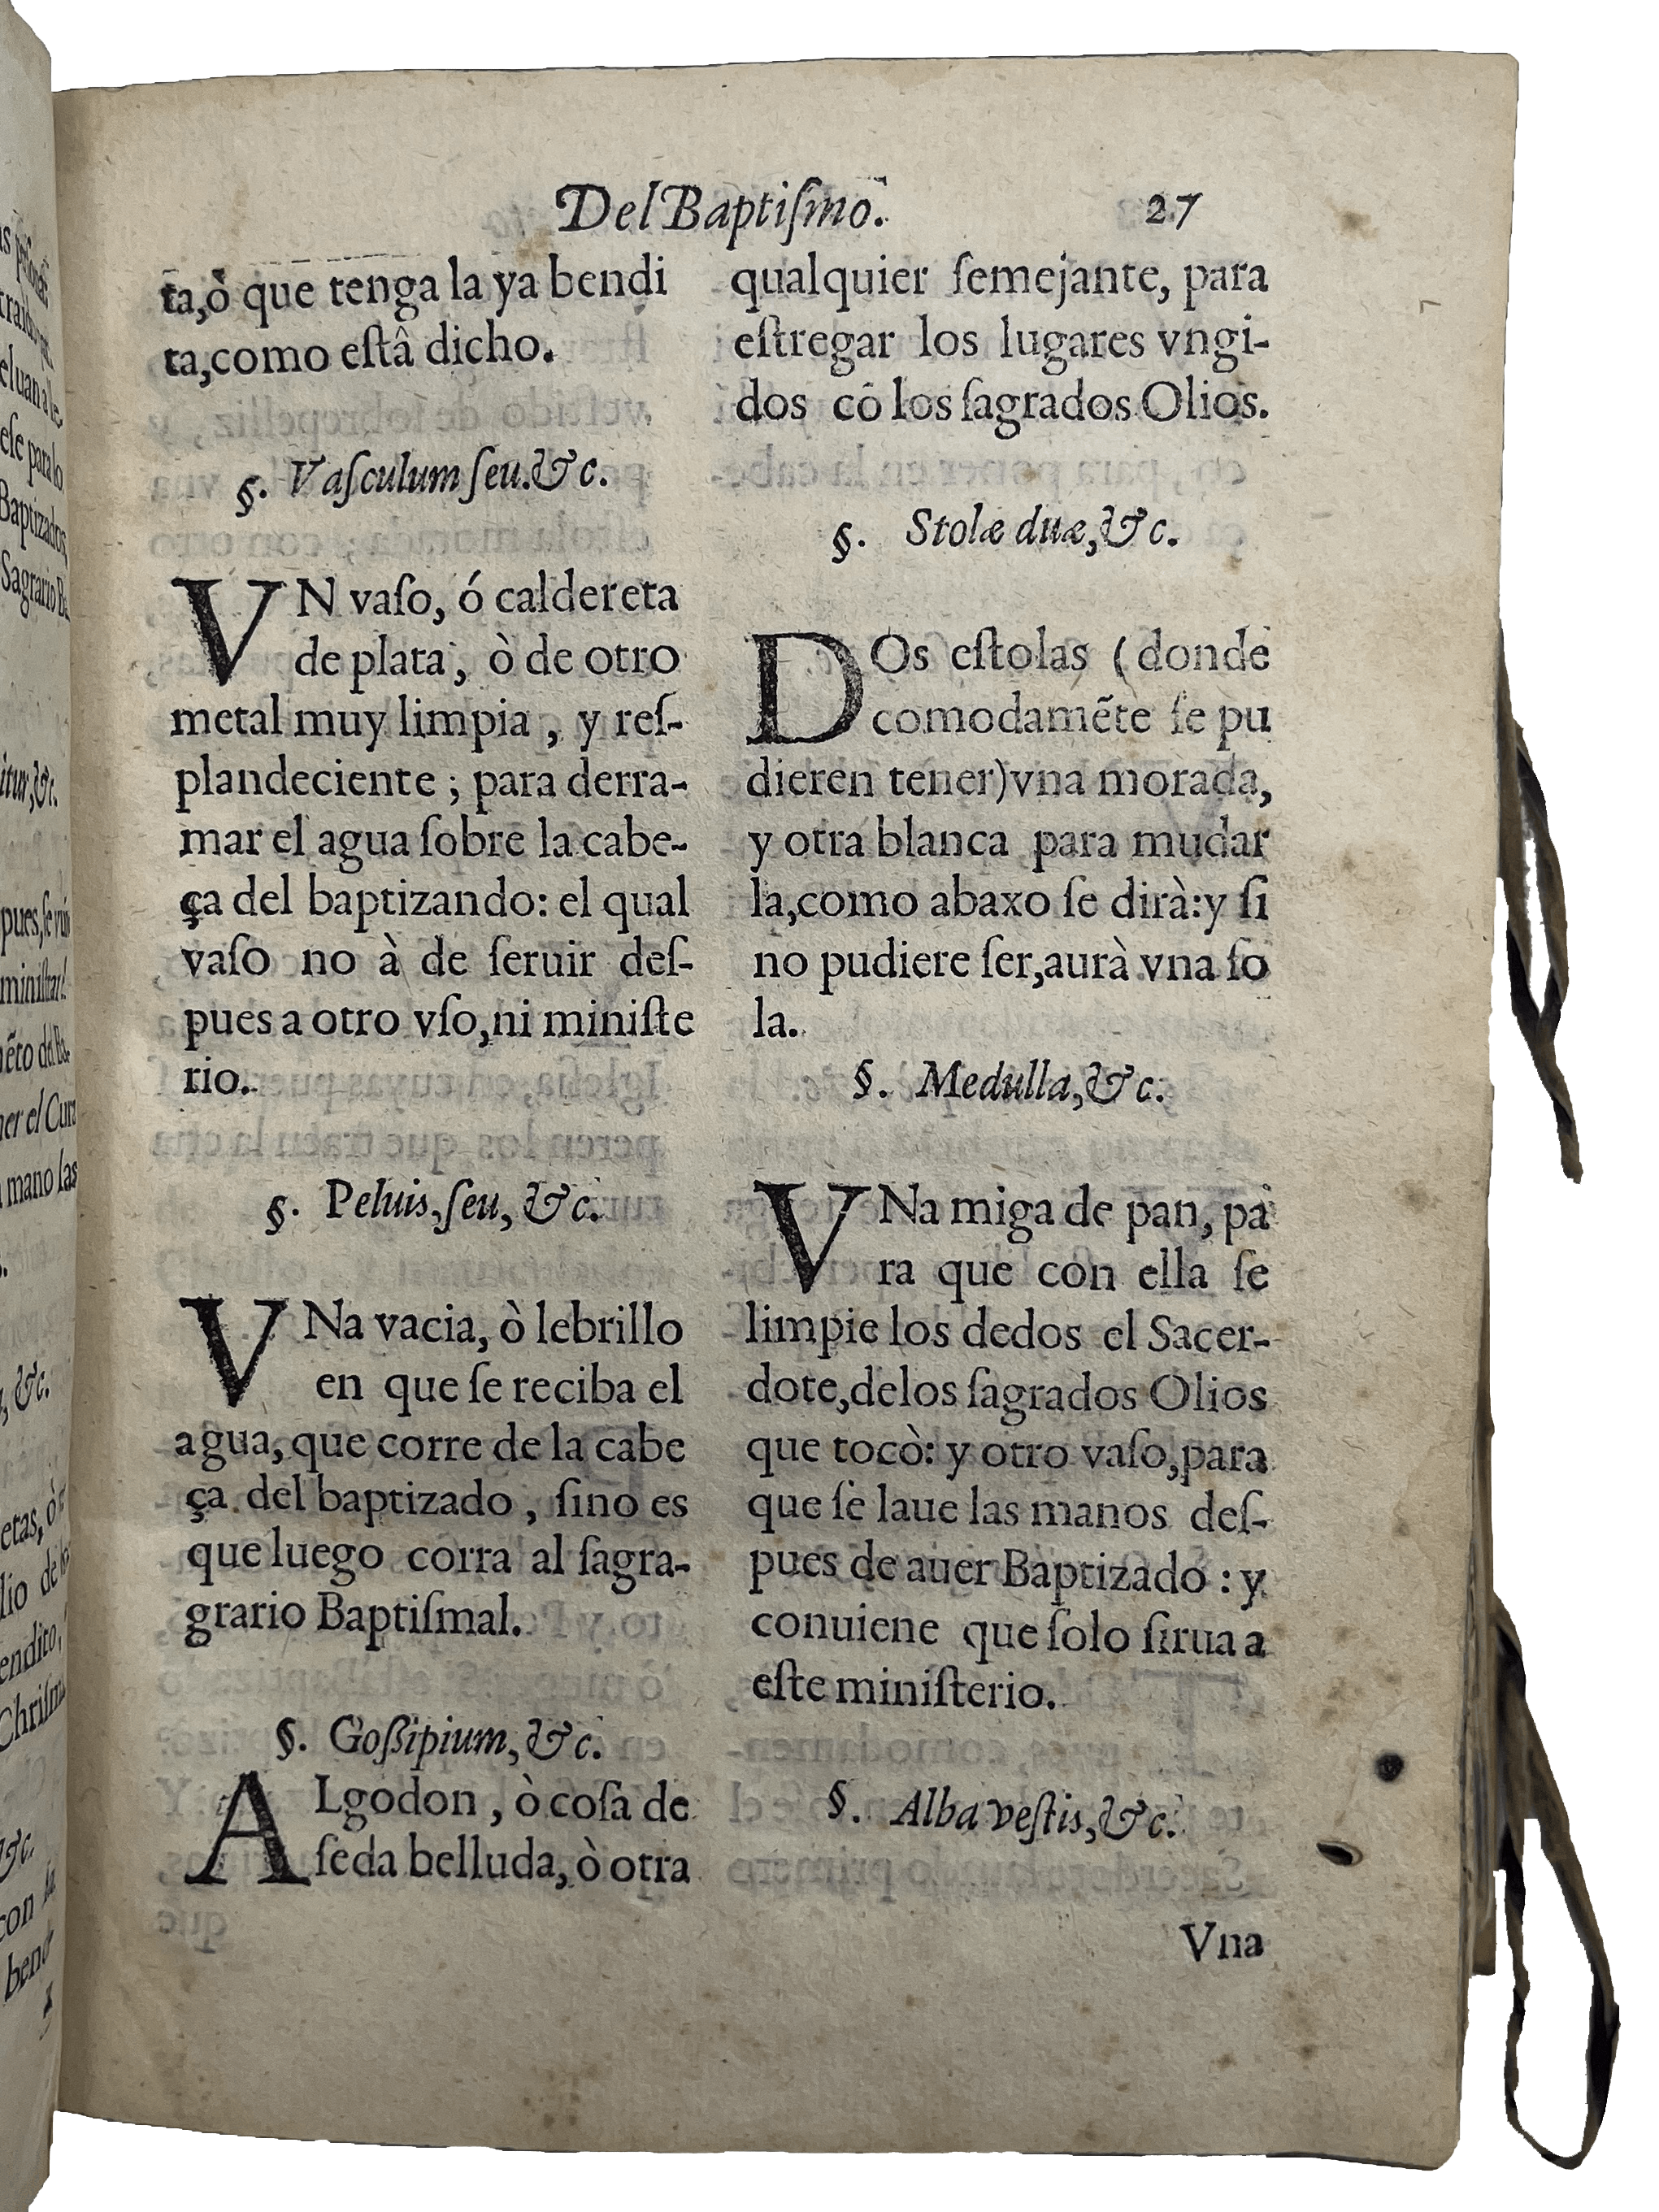 Del Baptiſmo. 27
ta,ò que tenga la ya bendi
ta,como eſtâ dicho.
§. Vaſculum ſeu.&c.
VN vaſo, ó caldereta
de plata, ò de otro
metal muy limpia, y reſ-
plandeciente; para derra-
mar el agua ſobre la cabe-
ça del baptizando: el qual
vaſo no à de ſeruir deſ-
pues a otro vſo,ni miniſte
rio.
§. Peluis,ſeu, &c.
VNa vacia, ò lebrillo
en que ſe reciba el
agua, que corre de la cabe
ça del baptizado, ſino es
que luego corra al ſagra-
grario Baptiſmal.
§. Goßipium, &c.
ALgodon, ò coſa de
ſeda belluda, ò otra
qualquier ſemejante, para
eſtregar los lugares vngi-
dos cõ los ſagrados Olios.
§. Stolæ duæ,&c.
DOs eſtolas (donde
comodamẽte ſe pu
dieren tener)vna morada,
y otra blanca para mudar
la,como abaxo ſe dirà:y ſi
no pudiere ſer,aurà vna ſo
la.
§. Medulla,&c.
VNa miga de pan, pa
ra que con ella ſe
limpie los dedos el Sacer-
dote,delos ſagrados Olios
que tocò: y otro vaſo,para
que ſe laue las manos deſ-
pues de auer Baptizado: y
conuiene que ſolo ſirua a
eſte miniſterio.
§. Alba veſtis,&c.
Vna